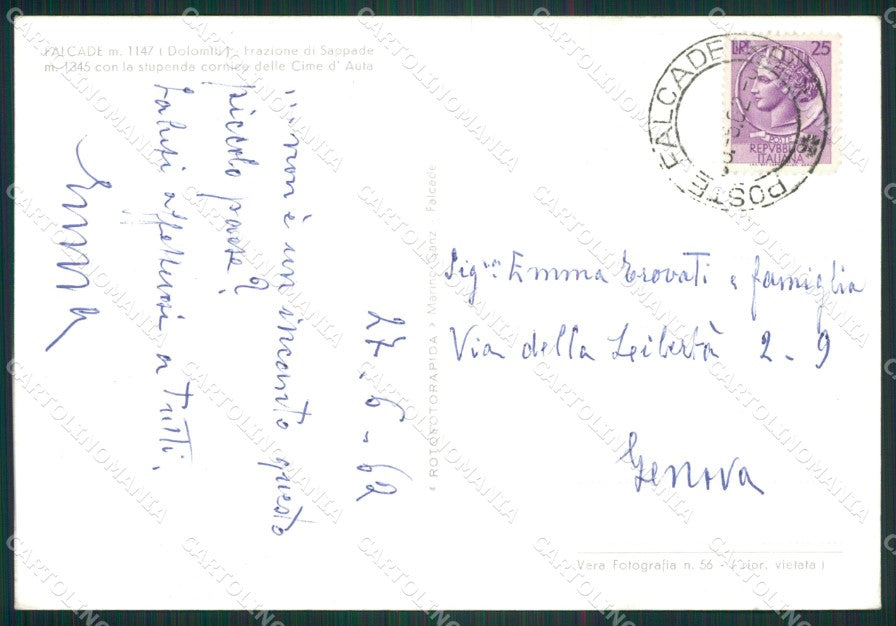 FALCADE m. 1147 ( Dolomiti ) - Frazione di Sappade
m. 1345 con la stupenda cornice delle Cime d' Auta
27.6-62
... non è un incanto questo
piccolo paese?
Saluti affettuosi a tutti.
Emma
« ROTOFOTORAPIDA » Marino Ganz - Falcade
LIRE 25
POSTE
REPVBBLICA
ITALIANA
POSTE FALCADE
Sig.ra Emma Trovati e famiglia
Via della Libertà 2-9
Genova
Vera Fotografia n. 56 - (Ripr. vietata)
CARTOLINOMANIA